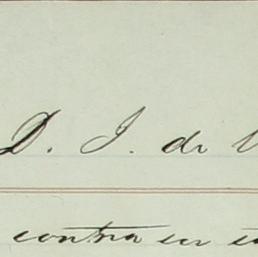 D. J. de
contra su